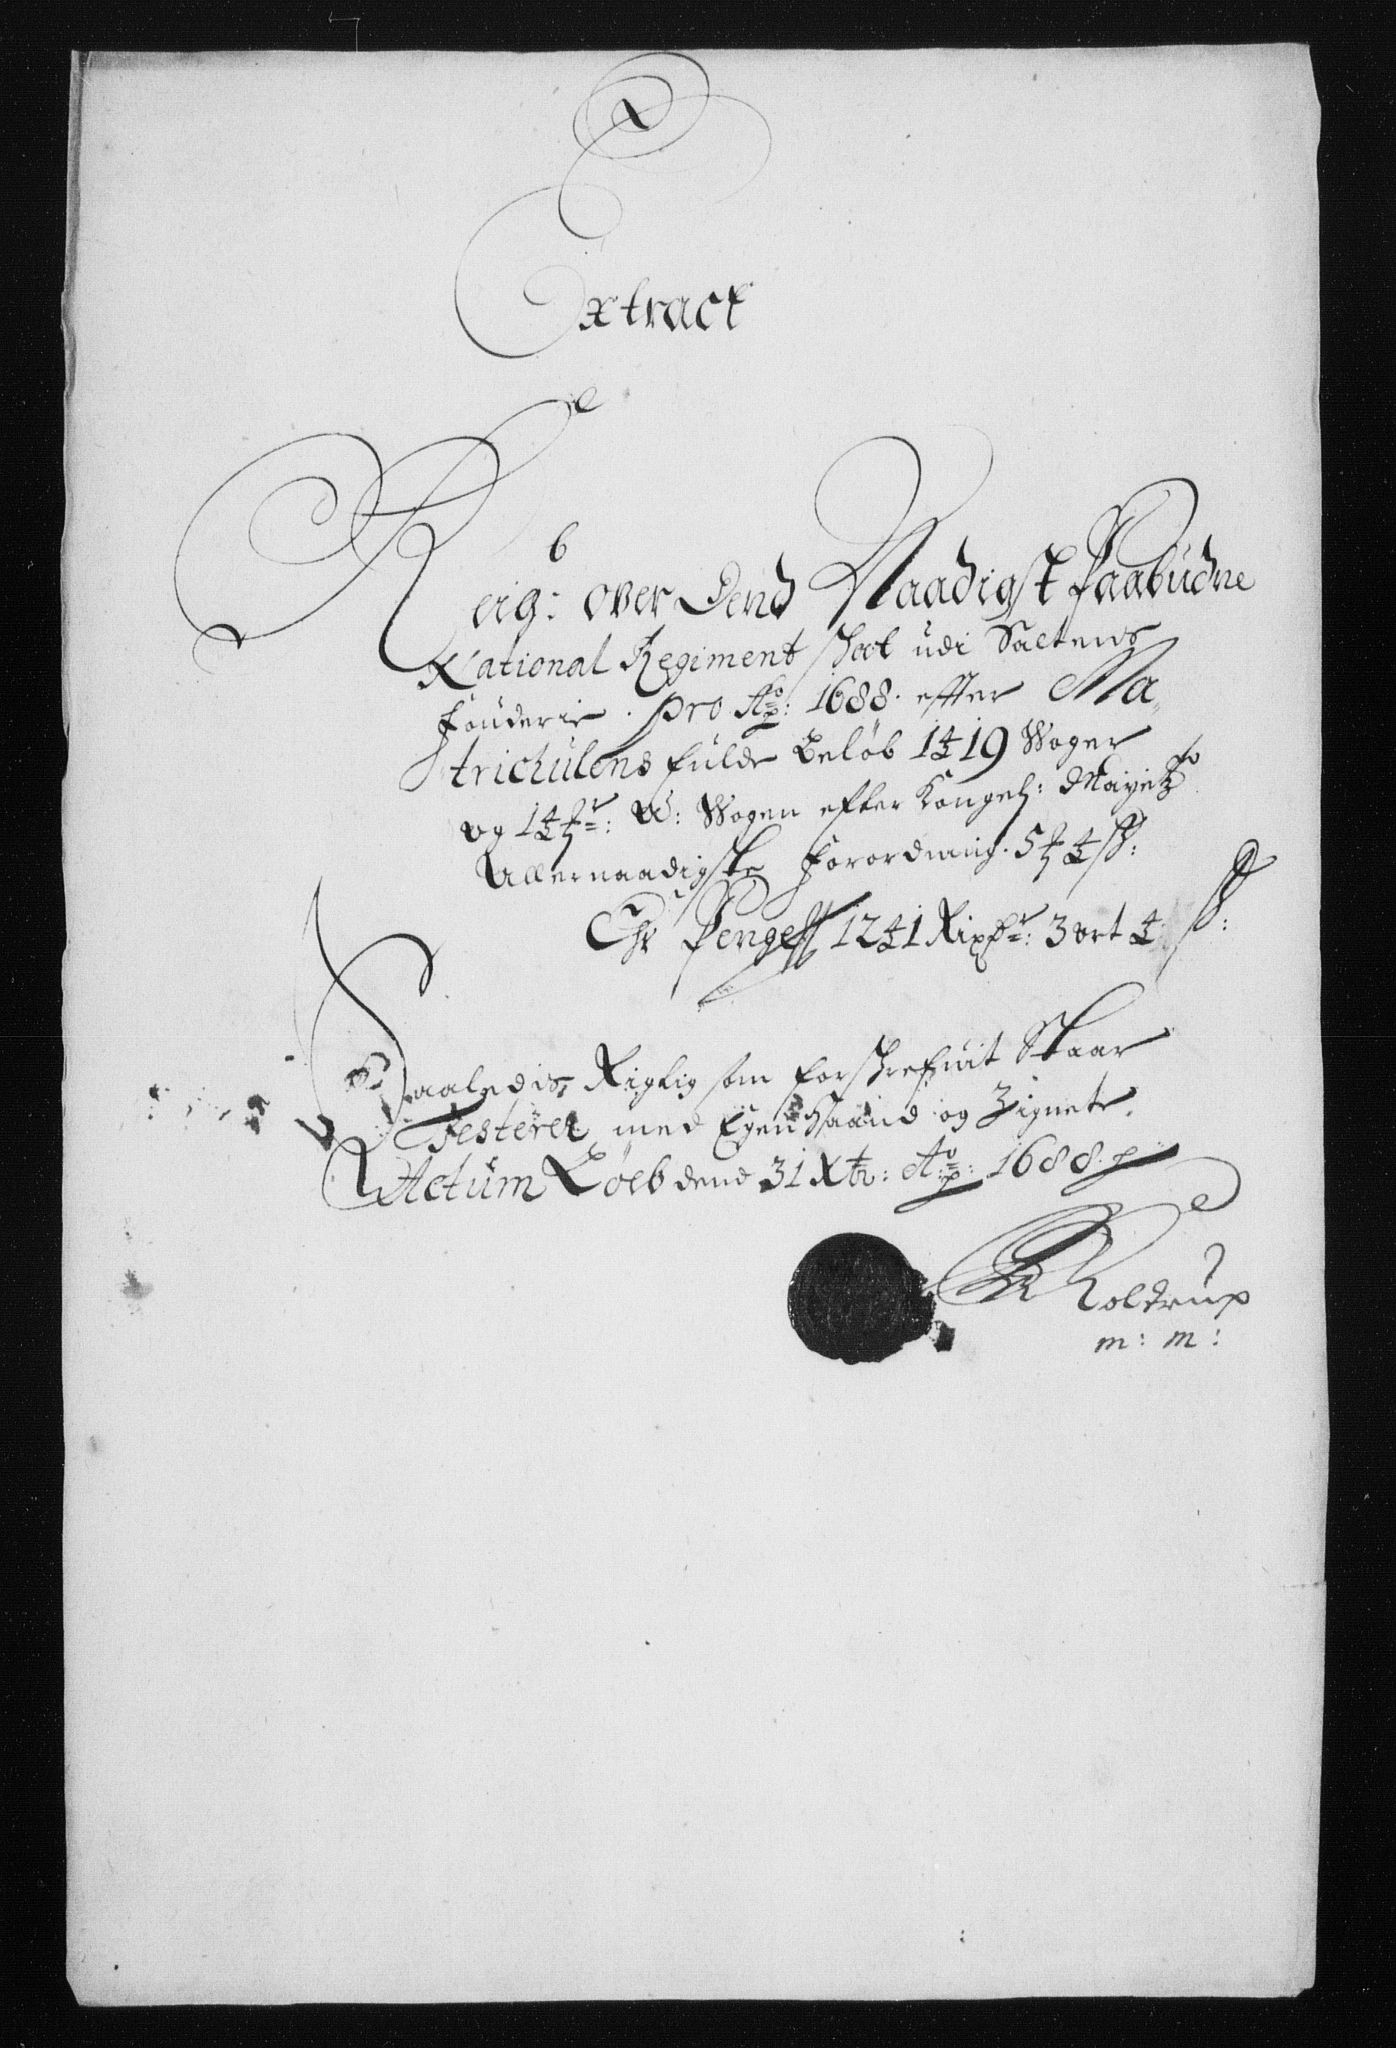 Extract
Reig: over Dend Naadigst Paabüdne
National Regiment skat udi Saltens
Fouderie. pro Ao: 1688. effter Ma
trichülens fulde Beløb 1419 Woger
og 1½ a: Wogen efter Kongel: Mayetz
Allernaadigste Forordning.
Er Penge 1241 Rixdr: 3 ort 4 s:
Saaledis Rigtig som forskrefuit staar
Testerer med Egen Haand og Zignete.
Actüm Löeb dend 31 Xbr: Ao: 1688.
Roldrup
m: m: